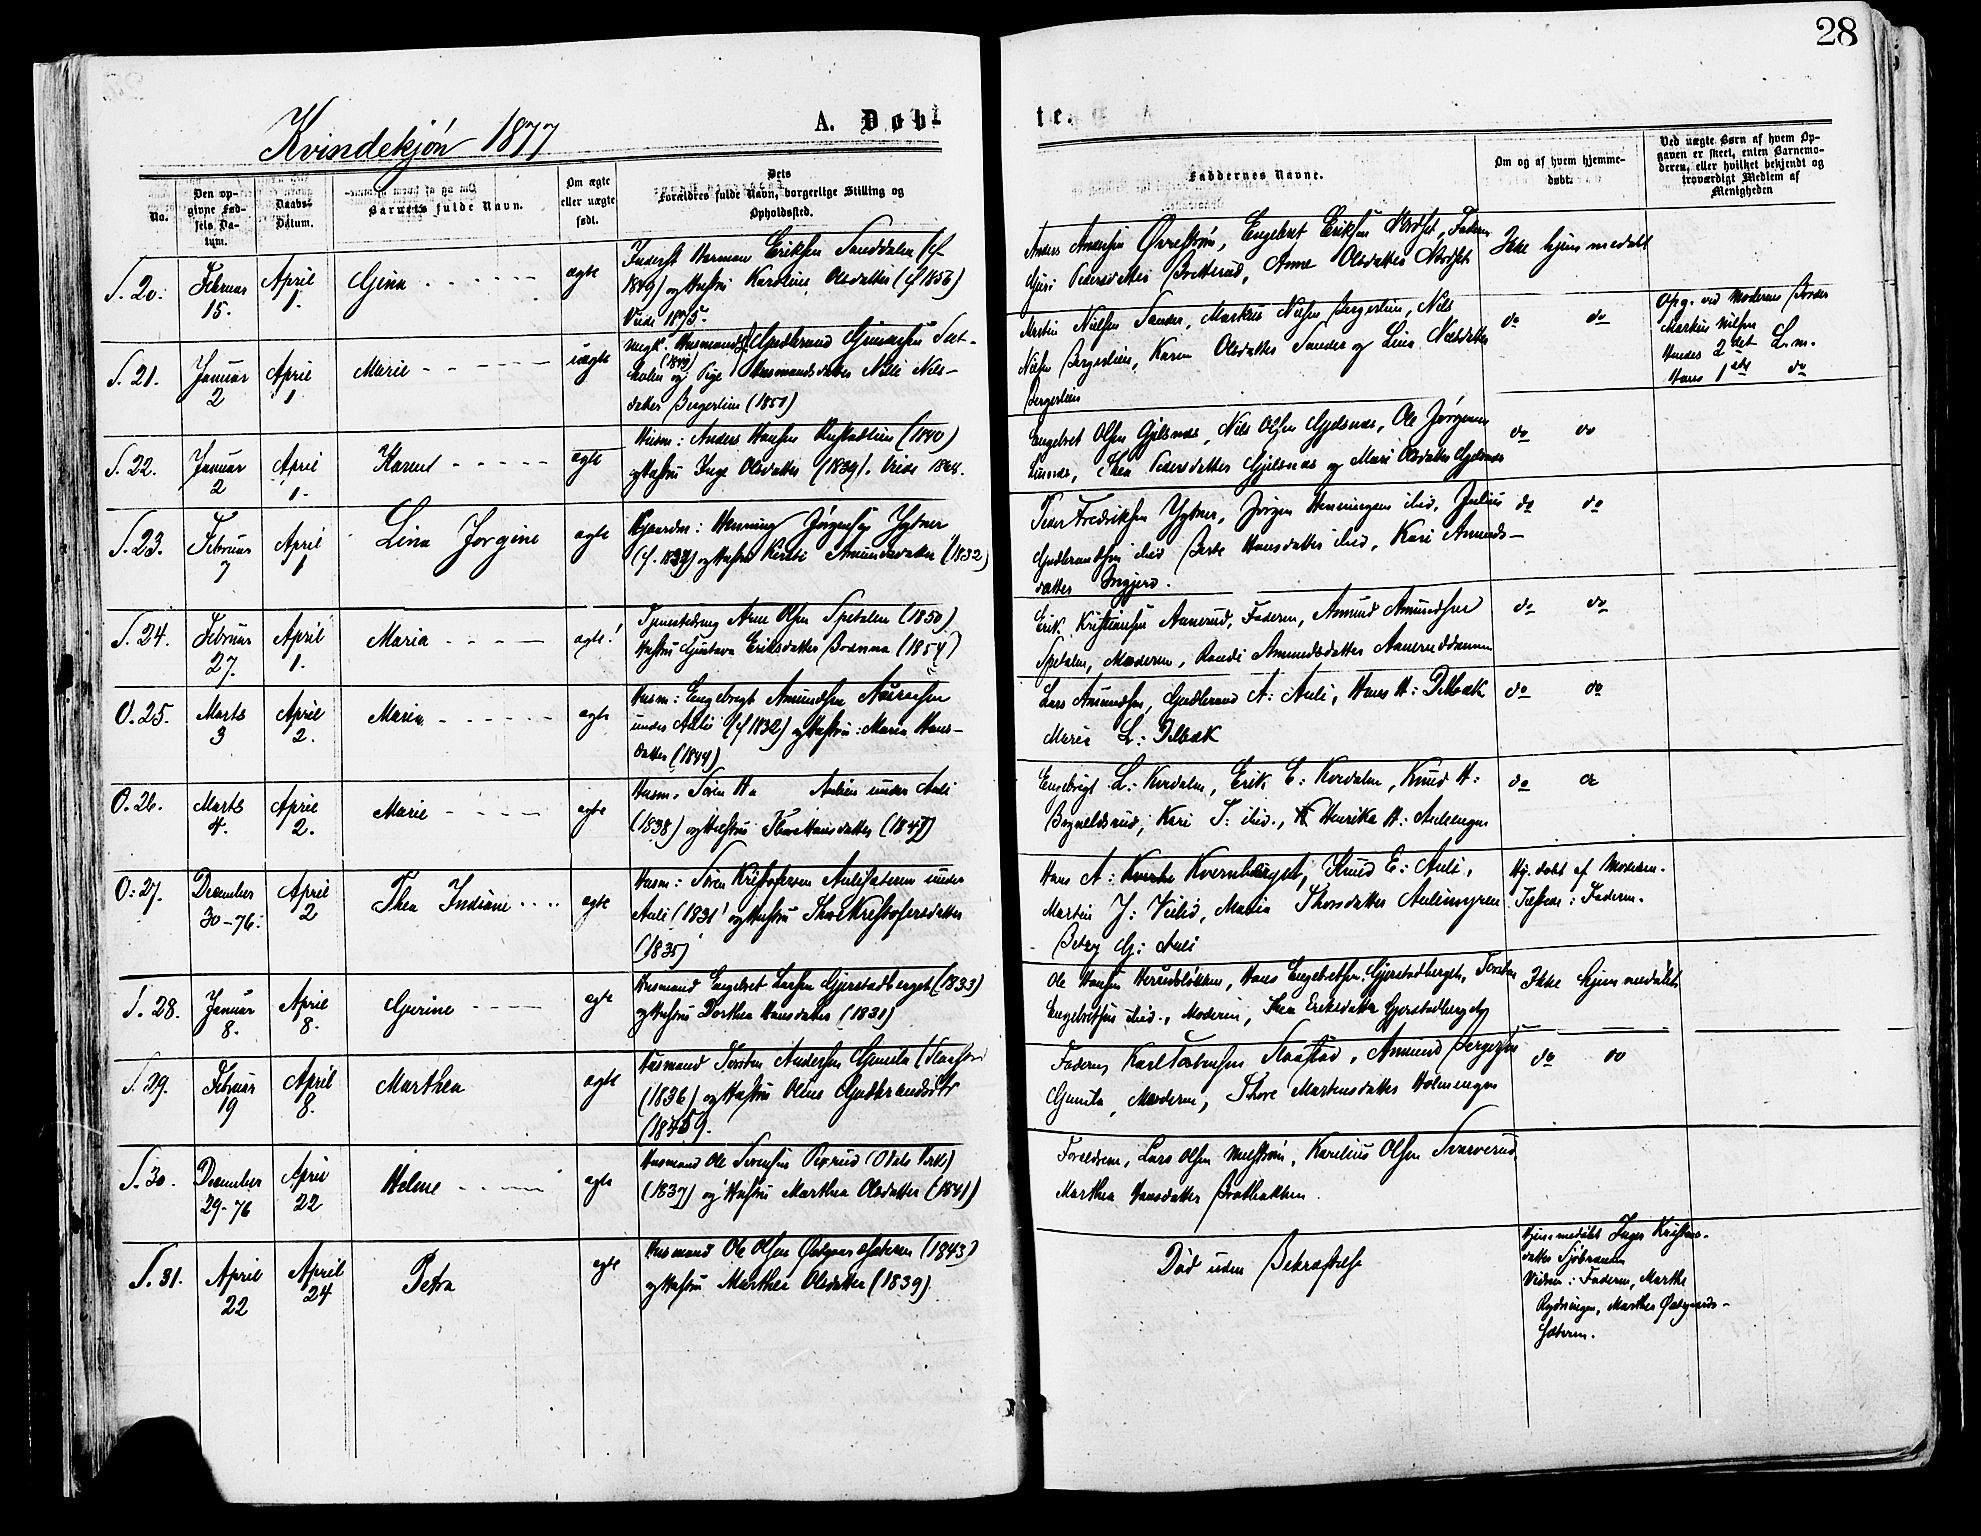 28
Kvindekjön 1877
A. Døbte.
No.
Den opgivne Fødsels Datum.
Daabs-Datum.
Barnets fulde Navn.
Om ægte eller uægte født.
Dets Forældres fulde Navn, borgerlige Stilling og Opholdssted.
Faddernes Navne.
Om og af hvem hjemmedøbt.
Ved uægte Børn af hvem Opgaven er skeet, enten Barnemoderen, eller hvilket bekjendt og troværdigt Medlem af Menigheden
S. 20. Februar 15. April 1. Gina ægte
Inderst Herman Eriksen Sanddalen (f.
1849) og Hustru Karoline Olsdatter (f 1856)
Viede 1875.
Anders Andersen Øvrestrøm, Engebret Eriksen Nordset, Faderen
Guri Pedersdatter Bratterud, Anne Olsdatter Nordset
Ikke hjemmedøbt
S. 21. Januar 2 April 1 Marie uægte
Ungk. Husmands. Gudbrand Gunnarsen Sæt-
(1849)
kolen og Pige Husmandsdatter Nille Nils-
datter Bergerlien (1850)
Martin Nielsen Sander, Markus Nielsen Bergerlien, Nils
Nielsen Bergerlien, Karen Olsdatter Sander og Lina Nilsdatter
Bergerlien
do do
Opg. ved Moderens Broder
Markus Nilsen
Hendes 2det L.m.
Hans 1ste do
S. 22. Januar 2 April 1. Karen ægte
Husm: Anders Hansen Rustadlien (1840)
og Hustru Inge Olsdatter (1839). Viede 1864.
Engebret Olsen Gjelsnæs, Nils Olsen Gjelsnæs, Ole Jørgensen
Thea Pedersdatter Gjelsnæs og Mari Olsdatter Gjelsnæs
do do
S. 23. Februar 7 April 1 Lina Jorgine ægte
Gaardm: Henning Jørgensen Hytner
(f. 1839) og Hustru Kirsti Amundsdatter (1832)
Peder Fredriksen Hytner, Jørgen Henningsen ibid, Julius
Gudbrandsen ibid Berte Hansdatter ibid, Kari Amunds-
datter
do do
S. 24. Februar 27. April 1. Maria ægte!
Tjenestedreng Arne Olsen Spetalen (1850)
Hustru Gustava Eriksdatter Brænna (1854)
Erik Kristiansen Aanerud, Faderen, Amund Amundsen
Spetalen, Moderen, Randi Amundsdatter Aaneruddammen
do do
O. 25. Marts 3 April 2. Maria ægte
Husm: Engebregt Amundsen
under Auli (f 1832) og Hustru: Maria Hans-
datter (1844)
Lars Amundsen, Gudbrand A: Auli, Hans H: Delbæk
Marie L: Delbæk
do do
O. 26. Marts 4. April 2. Marie ægte
Husm. Sören H. Aulien under Auli
(1838) og Hustru Hansdatter (1847)
Engebrigt L: Kordalen, Erik E: Kordalen, Knud H:
Kari ibid., Henrika H: Auliengen
do do
O: 27. December 30-76. April 2 Thea Indiane ægte
Husm: Sören Kristofersen Aulisæteren under
Auli (1831) og Hustru Thore Kristofersdatter
(1835)
Hans A: Kvernberget, Knud E: Auli,
Martin J: Maria Thorsdatter Aulimyren
Betzy G: Auli
Hj. döbt af Moderen.
Tilstede: Faderen.
S. 28. Januar 8. April 8. Gurine ægte
Husmand Engebret Larsen Gjerstadberget (1833)
og Hustru Dorthea Hansdatter (1830)
Ole Hansen Herudsløkken, Hans Engebretsen Gjerstadberget, Torsten
Engebretsen ibid., Moderen, Thea Eriksdatter Gjerstadberget
Ikke hjemmedøbt
S. 29. Februar 19 April 8. Marthea ægte
Husmand Torsten Andersen Gunila
(1836) og Hustru Oline Gudbrandsdtr
(1845)
Faderen, Karl Torstensen Slaastad, Amund Bergersen
Gunila, Moderen, Thore Martinsdatter Holmengen
do do
S. 30. December 29-76 April 22 Helene ægte
Husmand Ole Syversen Piprud (Odals Vestl)
(1837) og Hustru Marthea Olsdatter (1841)
Forældrene, Lars Olsen Melstrøm, Karelius Olsen Svarverud,
Marthea Hansdatter Bratbakken.
S. 31. April 22 April 24 Petra ægte
Husmand Ole Olsen Østgaardsæteren (1843)
og Hustru Marthea Olsdatter (1839)
Död uden Bekræftelse
Hjemmedøbt Inger Kristians-
datter Sjøbraaten
Vidner: Faderen, Marthe
Rydningen, Marthea Østgaards-
sæteren.